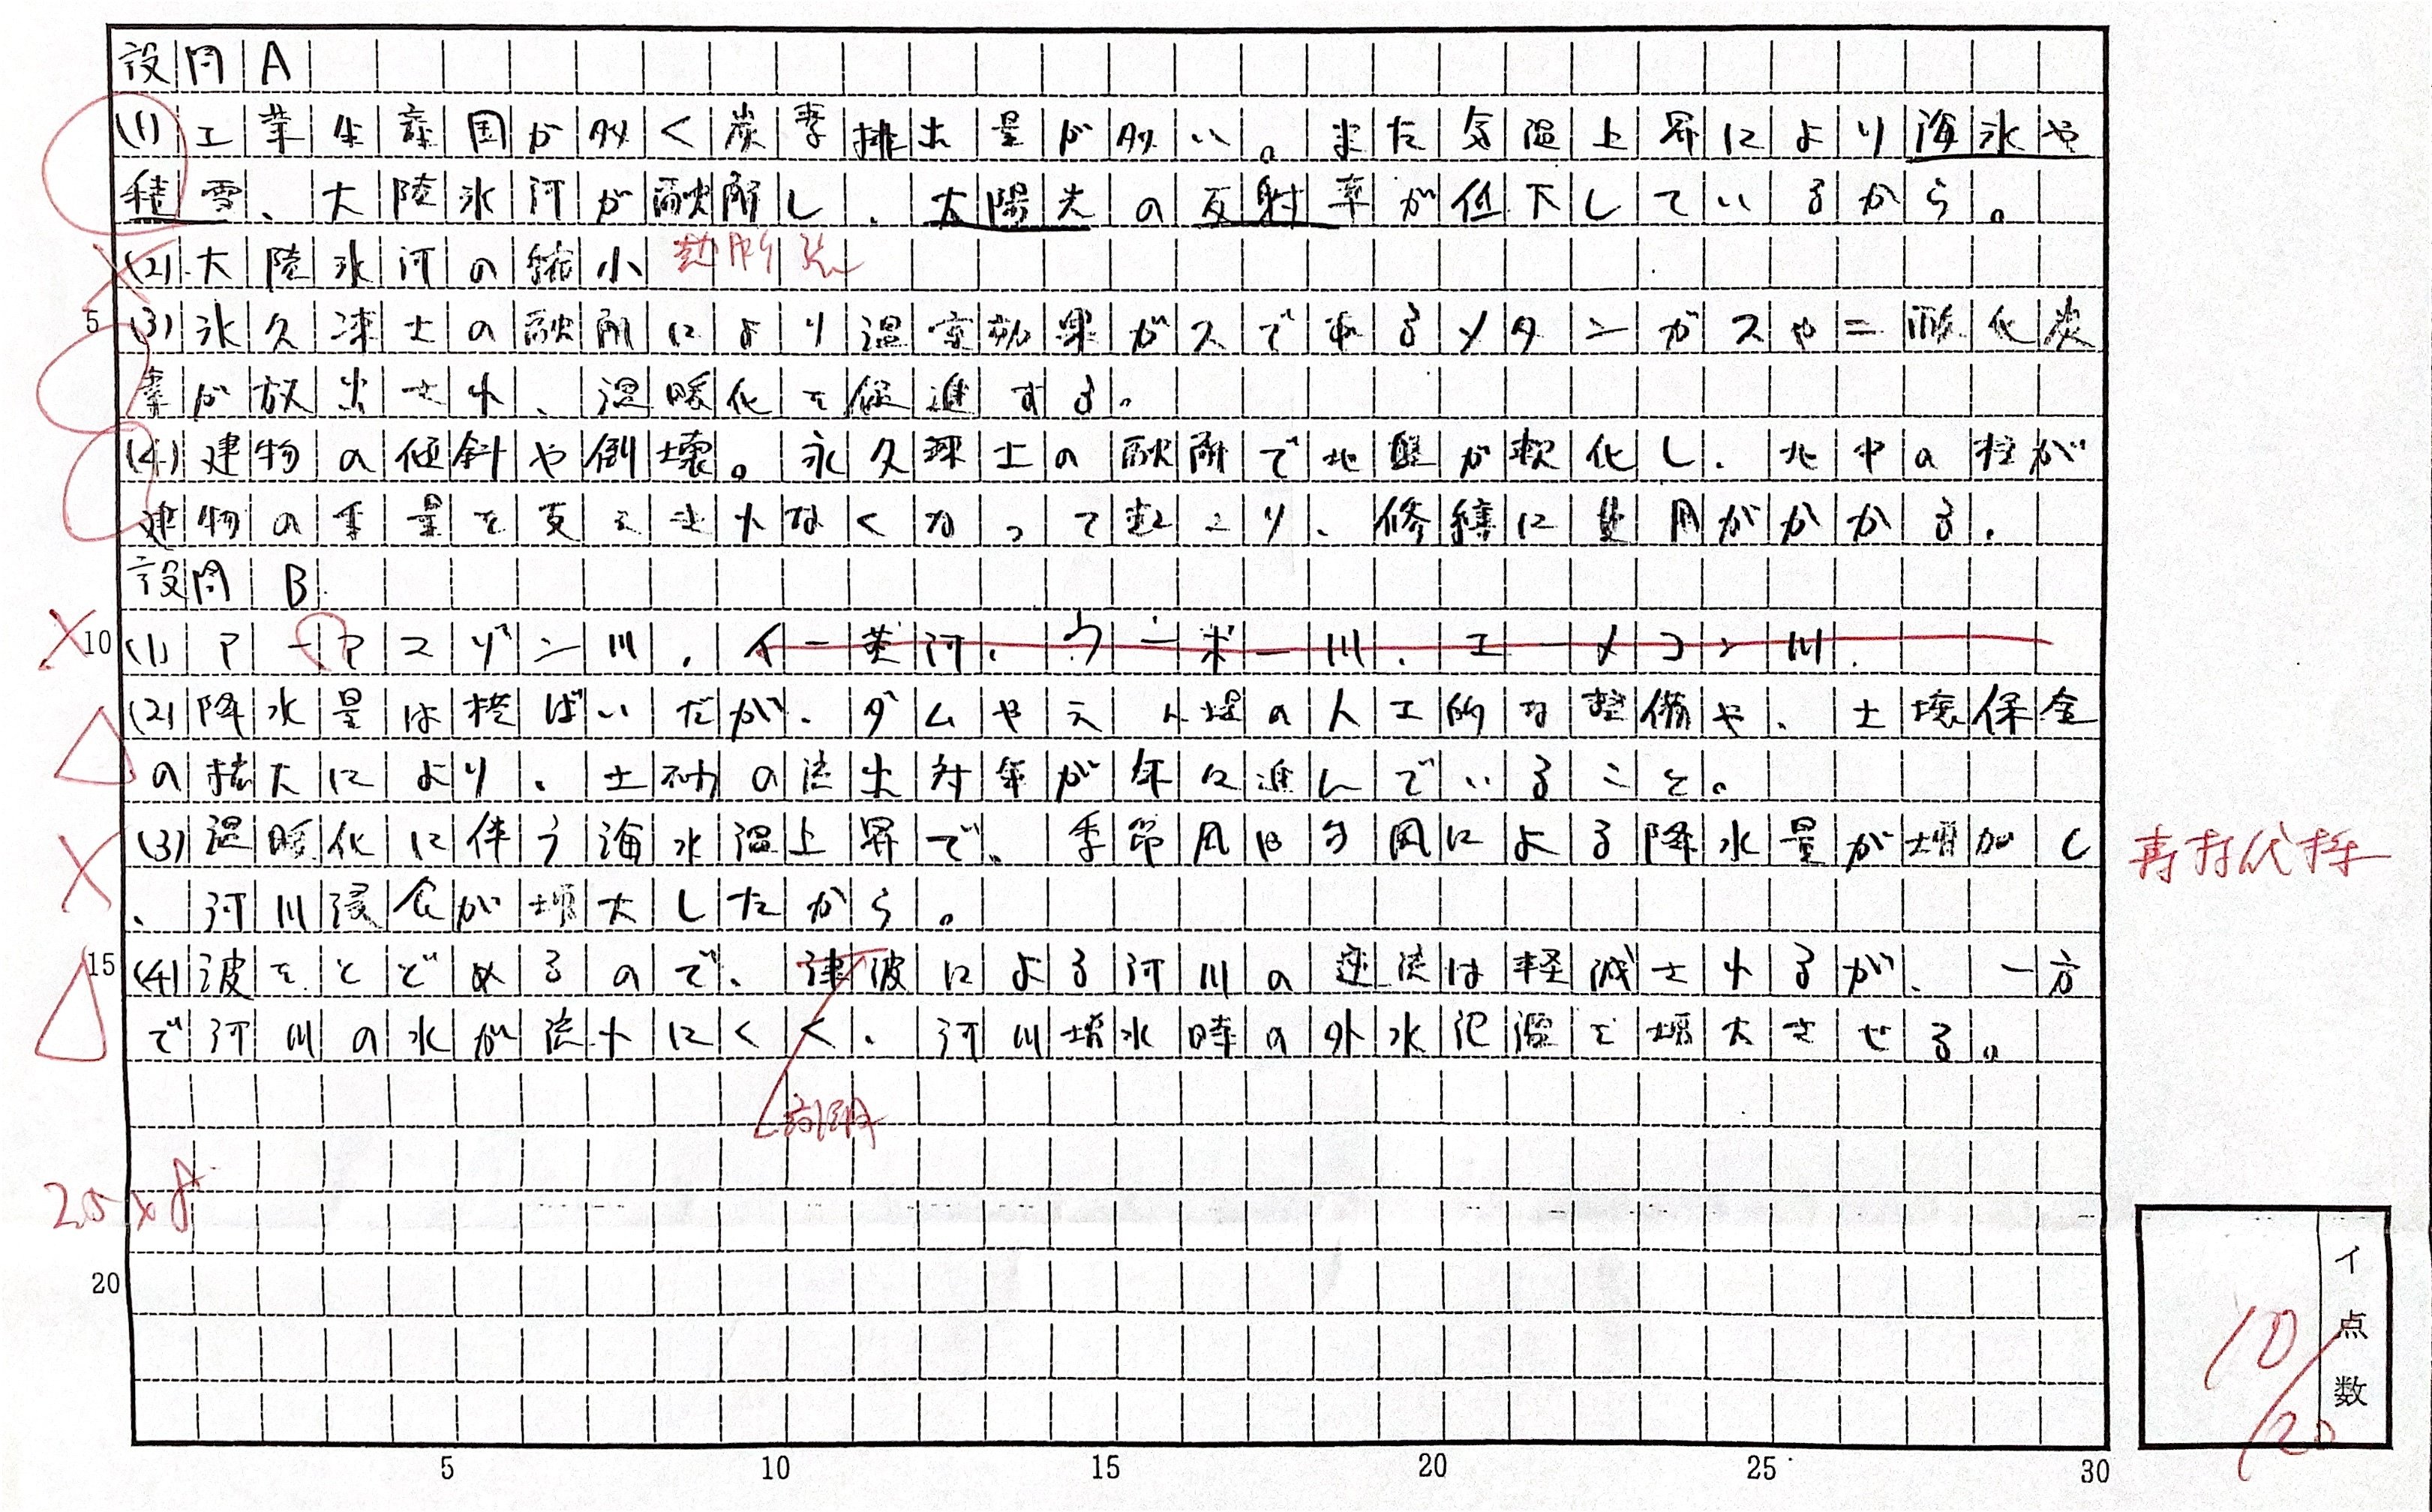 設問A
(1)工業生産国が多く炭素排出量が多い。また気温上昇により海氷や
積雪、大陸氷河が融解し、太陽光の反射率が低下しているから。
(2)大陸氷河の縮小 熱膨張
5 (3)永久凍土の融解により温室効果ガスであるメタンガスや二酸化炭
素が放出され、温暖化を促進する。
(4)建物の傾斜や倒壊。永久凍土の融解で地盤が軟化し、地中の柱が
建物の重量を支えきれなくなって起こり、修繕に費用がかかる。
設問B
10 (1)アーアマゾン川、イー黄河、ウーポー川、エーメコン川
(2)降水量は横ばいだが、ダムや人工堤の人工的な整備や、土壌保全
の拡大により、土砂の流出対策が年々進んでいること。
(3)温暖化に伴う海水温上昇で、季節風や台風による降水量が増加し
、河川浸食が増大したから。
森林伐採
15 (4)波をとどめるので、津波による河川の逆流は軽減されるが、一方
で河川の水が流れにくく、河川増水時の外水氾濫を増大させる。
高潮
2点×8
20
イ点数
10/20
5 10 15 20 25 30